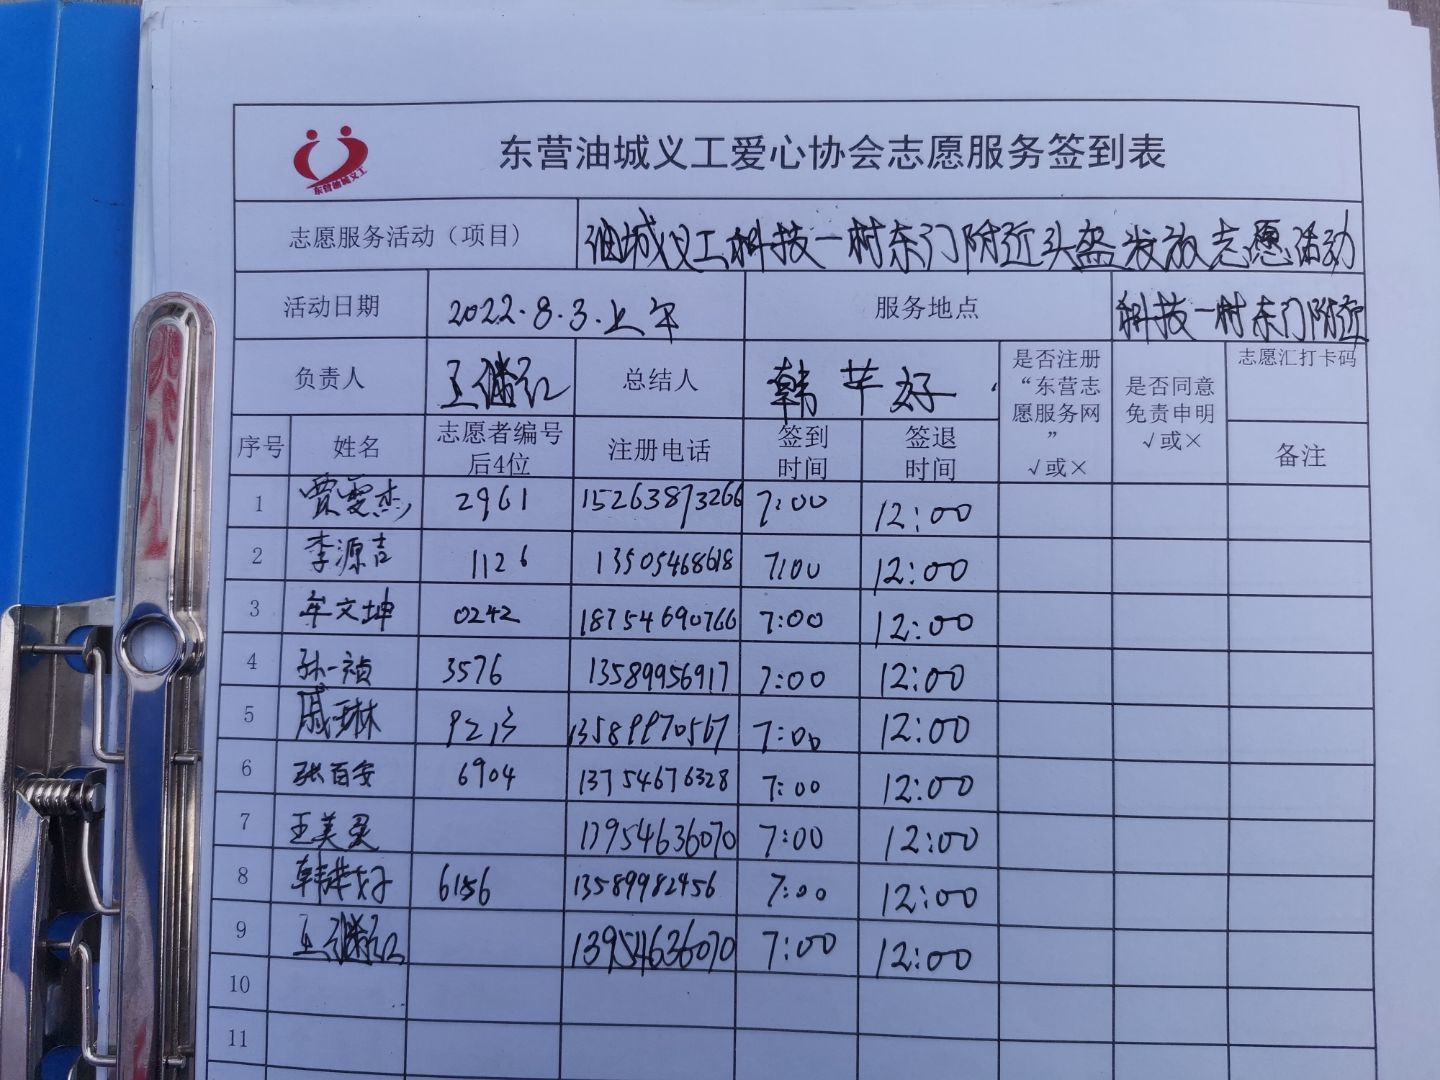 东营油城义工爱心协会志愿服务签到表
东营油城义工
志愿服务活动（项目） 油城义工科技一村东门附近头盔发放志愿活动
活动日期 2022.8.3.上午 服务地点 科技一村东门附近
负责人 王继红 总结人 韩芊好 是否注册“东营志愿服务网” √或× 是否同意免责申明 √或× 志愿汇打卡码
序号 姓名 志愿者编号后4位 注册电话 签到时间 签退时间 备注
1 贾雯杰 2961 15263873266 7:00 12:00
2 李源吉 1126 13505468618 7:00 12:00
3 牟文坤 0242 18754690766 7:00 12:00
4 孙一祯 3576 13589956917 7:00 12:00
5 戚琳 9213 13589970567 7:00 12:00
6 张百安 6904 13754676328 7:00 12:00
7 王美灵 13954636070 7:00 12:00
8 韩芊好 6156 13589982456 7:00 12:00
9 王继红 13954636070 7:00 12:00
10
11